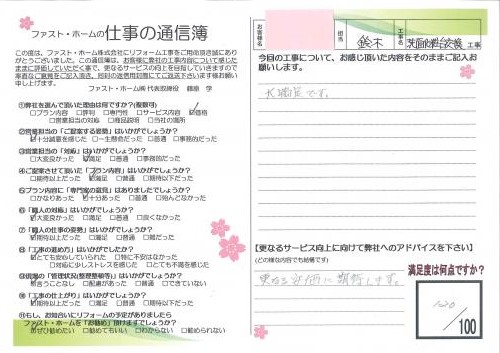 ファスト・ホームの仕事の通信簿
この度は、ファスト・ホーム株式会社にリフォーム工事をご用命頂き誠にあり
がとうございました。この通信簿は、お客様に弊社の工事内容について感じた
ままに評価していただく事で、更なるサービスの向上を目指していきますので
率直なご意見をご記入頂き、同封の返信用封筒にてご返送下さいます様お願い
申し上げます。
ファスト・ホーム㈱ 代表取締役 藤原 学
①弊社を選んで頂いた理由は何ですか?(複数可)
□プラン □評判 □専門性 □サービス内容 ☑価格
□営業担当の対応 □商品説明 □当社の場所
②営業担当の「ご提案する姿勢」はいかがでしょうか?
☑十分誠意を感じた □一生懸命だった □普通 □事務的だった
③営業担当の「対応」はいかがでしょうか?
□大変良かった ☑満足 □普通 □事務的だった
④ご提案させて頂いた「プラン内容」はいかがでしょうか?
□期待以上だった ☑満足 □普通 □期待以下だった
⑤プラン内容に「専門家の意見」はありましたでしょうか?
□かなりあった ☑十分あった □普通 □殆んどなかった
⑥「職人の対応」はいかがでしょうか?
☑大変良かった □満足 □普通 □良くなかった
⑦「職人の仕事の姿勢」はいかがでしょうか?
☑期待以上だった □満足 □普通 □期待以下だった
⑧「工事の進めり」はいかがでしたか?
☑とても安心していられた □特に不安はなかった
□対応に少しストレスを感じた □とても不満を感じた
⑨現場の「管理状況(整理整頓等)」はいかがでしょうか?
☑言うことなし □配慮があった □普通 □できていない
⑩「工事の仕上がり」はいかがでしょうか?
☑期待以上だった □満足 □普通 □期待以下だった
⑪もし、お知り合いにリフォームの予定がありましたら
ファスト・ホームを「お勧め」頂けますでしょうか?
☑ぜひ勧めたい □勧めてもいい □わからない □勧められない
お客様名
担当 鈴木
工事名 洗面化粧台交換 工事
今回の工事について、お感じ頂いた内容をそのままご記入お
願いします。
大満足です。
【更なるサービス向上に向けて弊社へのアドバイスを下さい】
(どの様な内容でも結構です)
更なる価に期待します。
満足度は何点ですか?
120
/100